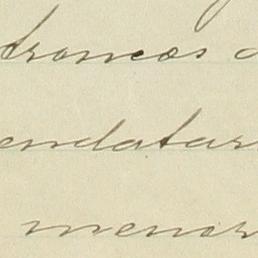 troncos
endatar
menor